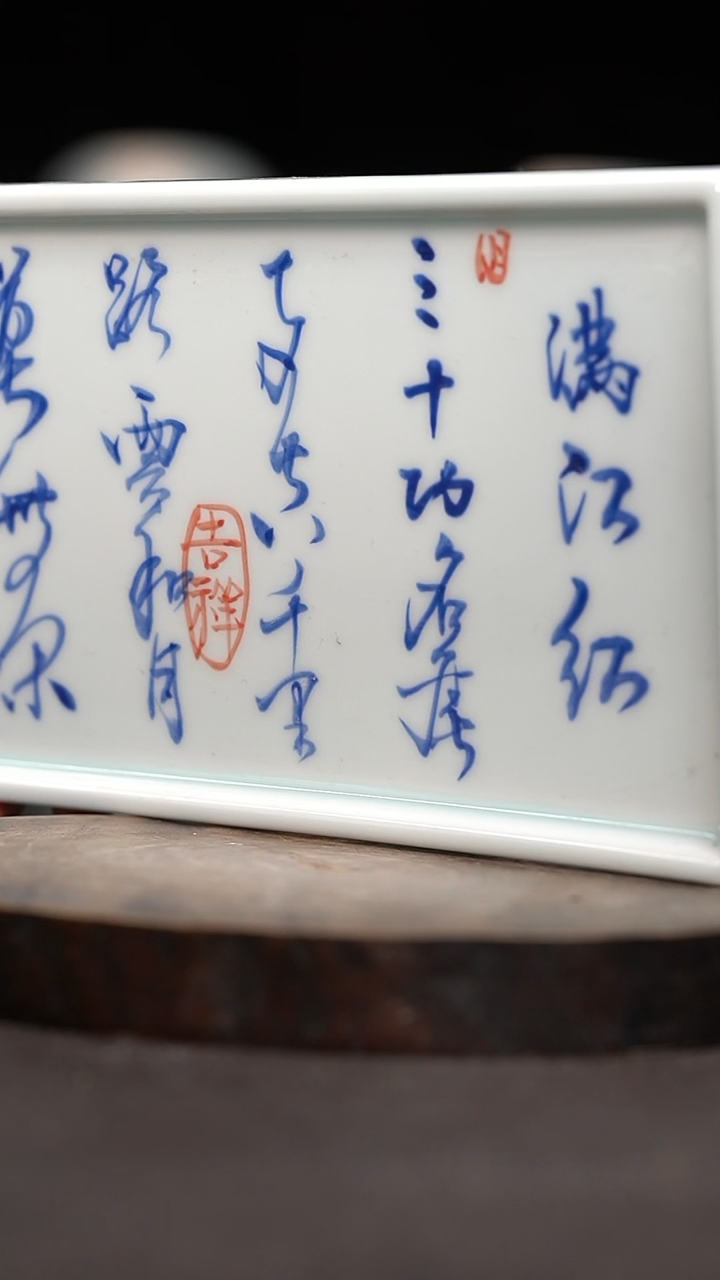 滿江紅
三十功名塵
与土八千里
路雲和月
吉祥